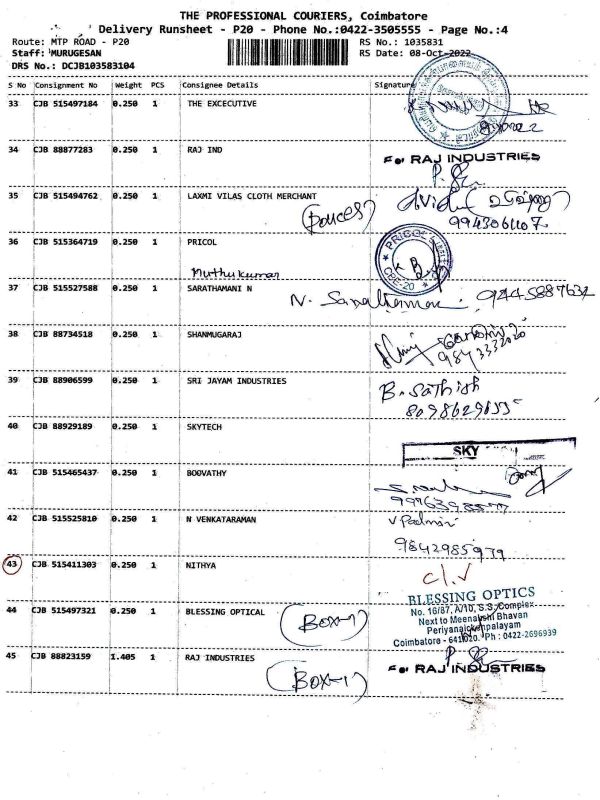 THE PROFESSIONAL COURIERS, Coimbatore
Delivery Runsheet - P20 - Phone No.:0422-3505555 - Page No.:4
Route: MTP ROAD - P20 RS No.: 1035831
Staff: MURUGESAN RS Date: 08-Oct-2022
DRS No.: DCJB103583104
S No Consignment No Weight PCS Consignee Details Signature
33 CJB 515497184 0.250 1 THE EXCECUTIVE
34 CJB 88877283 0.250 1 RAJ IND For RAJ INDUSTRIES
35 CJB 515494762 0.250 1 LAXMI VILAS CLOTH MERCHANT
9943061107
36 CJB 515364719 0.250 1 PRICOL PRICOL CBE-20
Muthukumar
37 CJB 515527588 0.250 1 SARATHAMANI N 9445887632
38 CJB 88734518 0.250 1 SHANMUGARAJ
9843332020
39 CJB 88906599 0.250 1 SRI JAYAM INDUSTRIES B. Sathish
8098629655
40 CJB 88929189 0.250 1 SKYTECH SKY
41 CJB 515465437 0.250 1 BOOVATHY
42 CJB 515525810 0.250 1 N VENKATARAMAN V Padmini
9842985979
43 CJB 515411303 0.250 1 NITHYA
44 CJB 515497321 0.250 1 BLESSING OPTICAL (Box-1) BLESSING OPTICS
No. 16/87, A/10, S.S. Complex
Next to Meenakshi Bhavan
Periyanaickenpalayam
Coimbatore - 641020. Ph : 0422-2696939
45 CJB 88823159 1.405 1 RAJ INDUSTRIES (Box-1) For RAJ INDUSTRIES